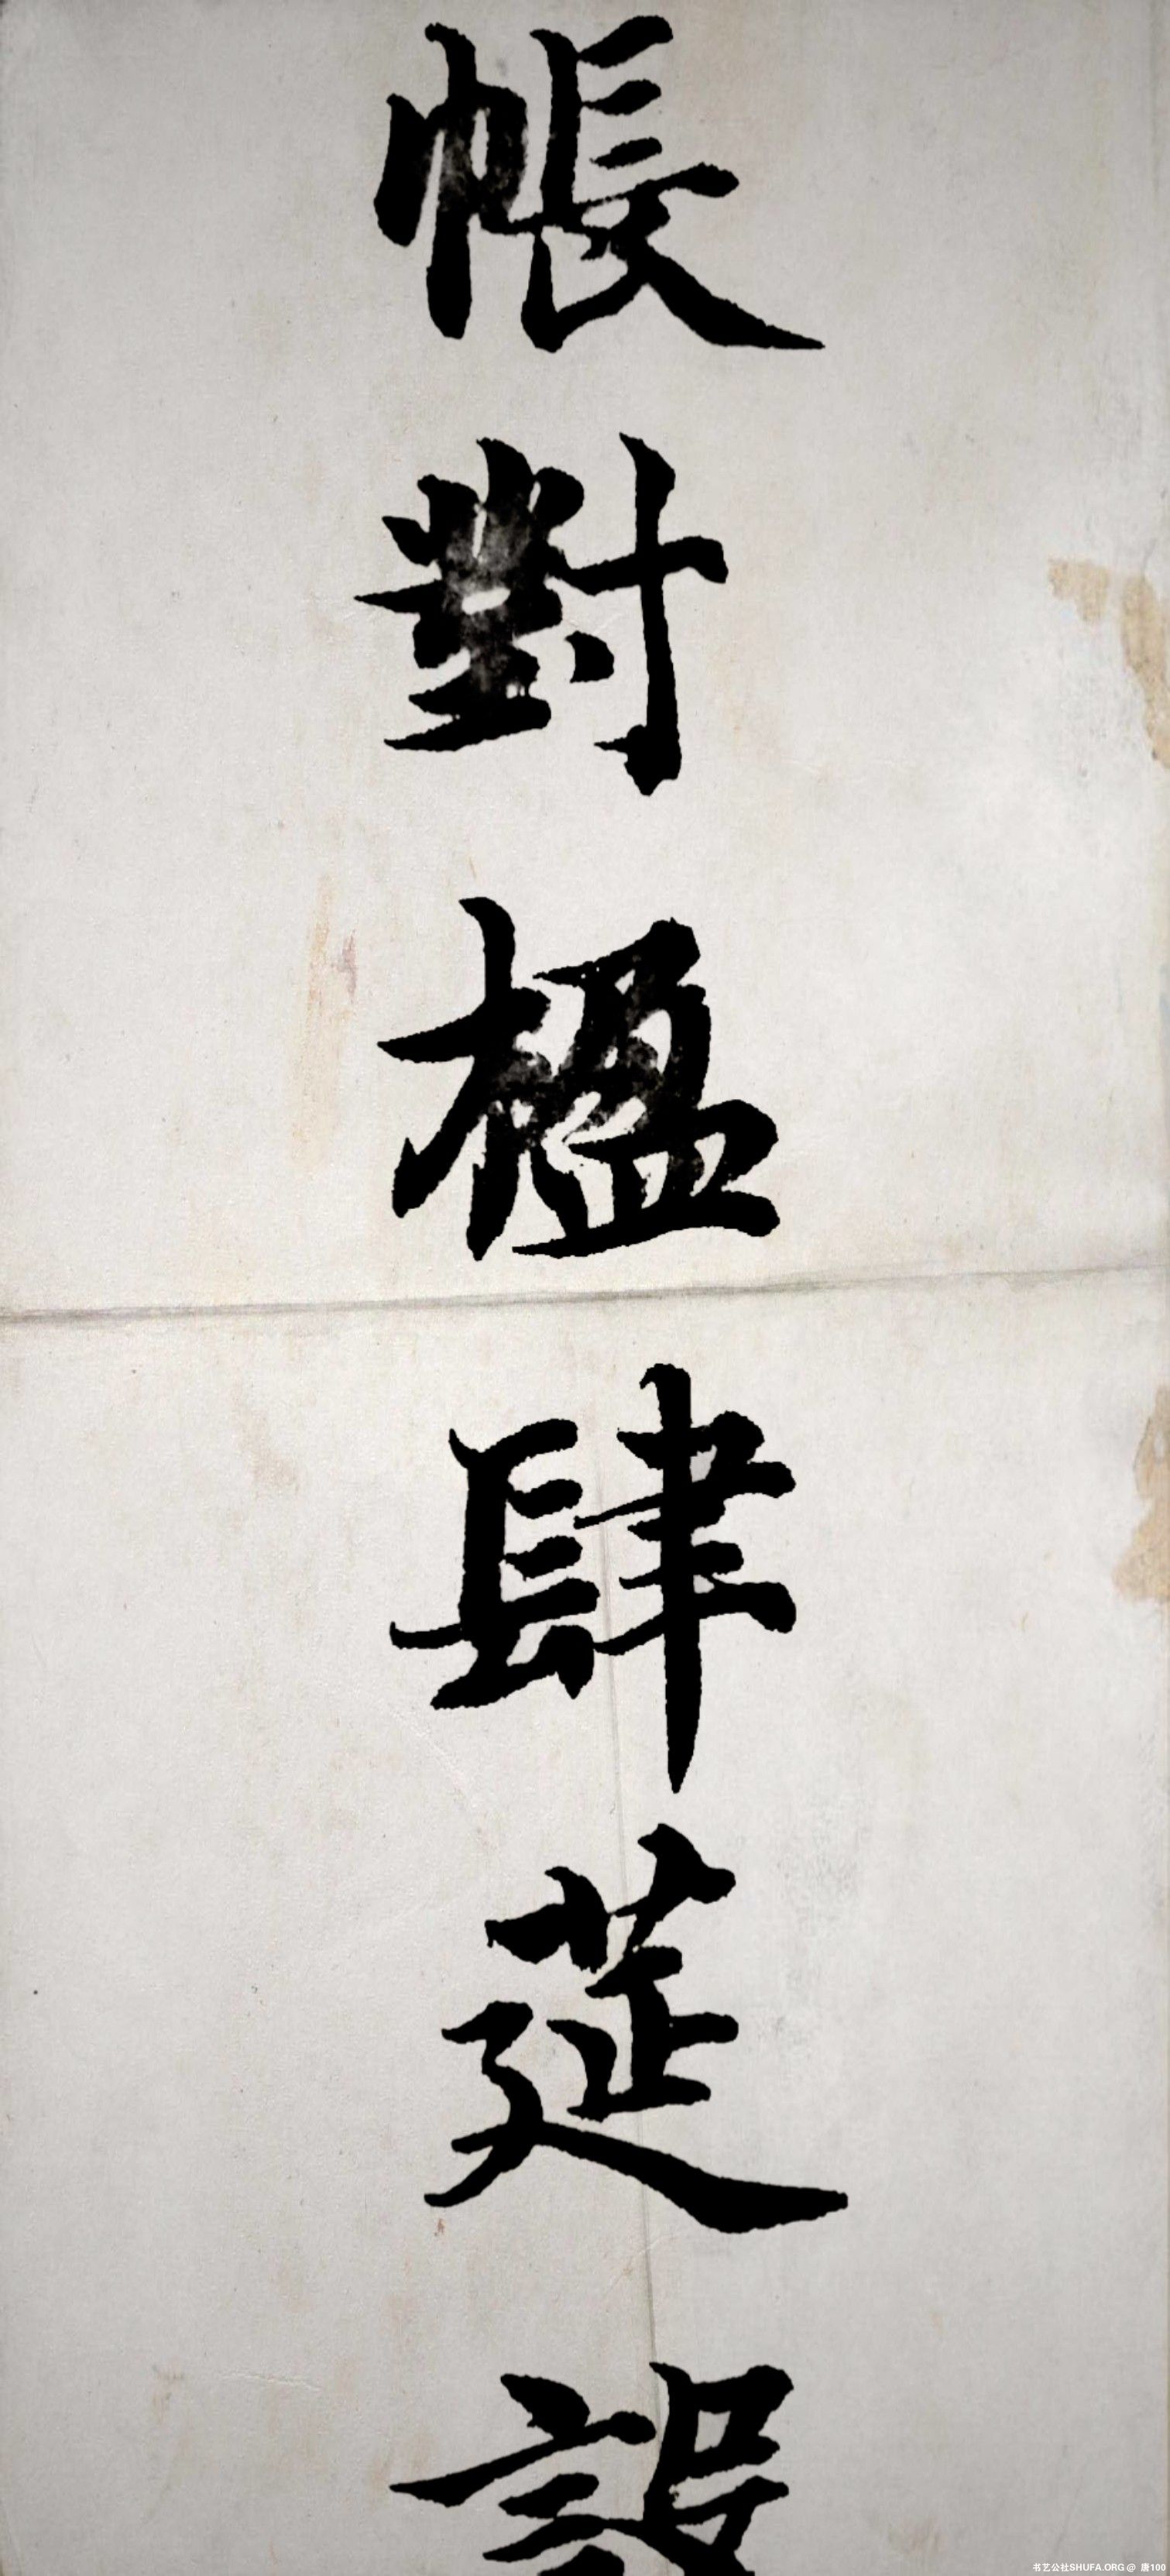 帳對楹肆莚設
书艺公社SHUFA.ORG @ 唐100